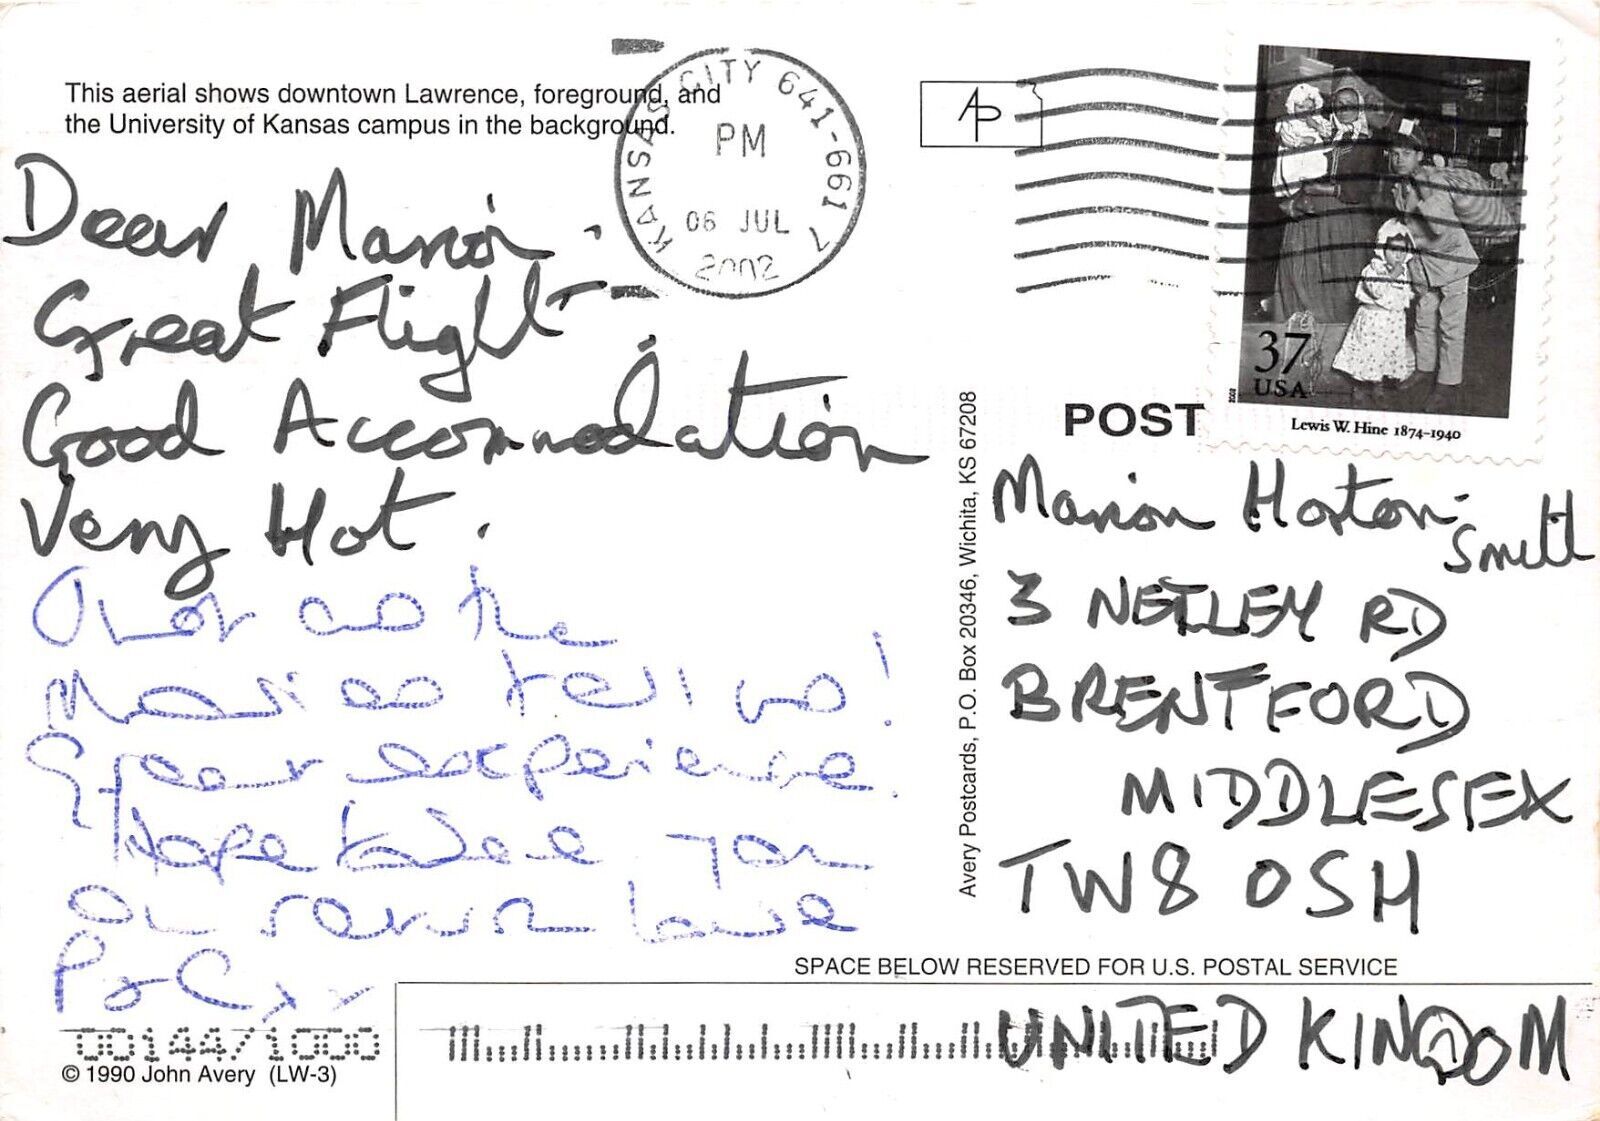 This aerial shows downtown Lawrence, foreground, and
the University of Kansas campus in the background.
KANSAS CITY 641-661 7
PM
06 JUL
2002
AP
37
USA
2002
Lewis W. Hine 1874-1940
Dear Marion.
Great Flight -
Good Accommodation
Very Hot.
as the
Movies tell us!
Great experience.
Hope to see you
on return love
P & C xx
POST
Marion Horton-
Smith
3 NETLEY RD
BRENTFORD
MIDDLESEX
TW8 0SH
UNITED KINGDOM
Avery Postcards, P.O. Box 20346, Wichita, KS 67208
SPACE BELOW RESERVED FOR U.S. POSTAL SERVICE
00144/1000
© 1990 John Avery (LW-3)